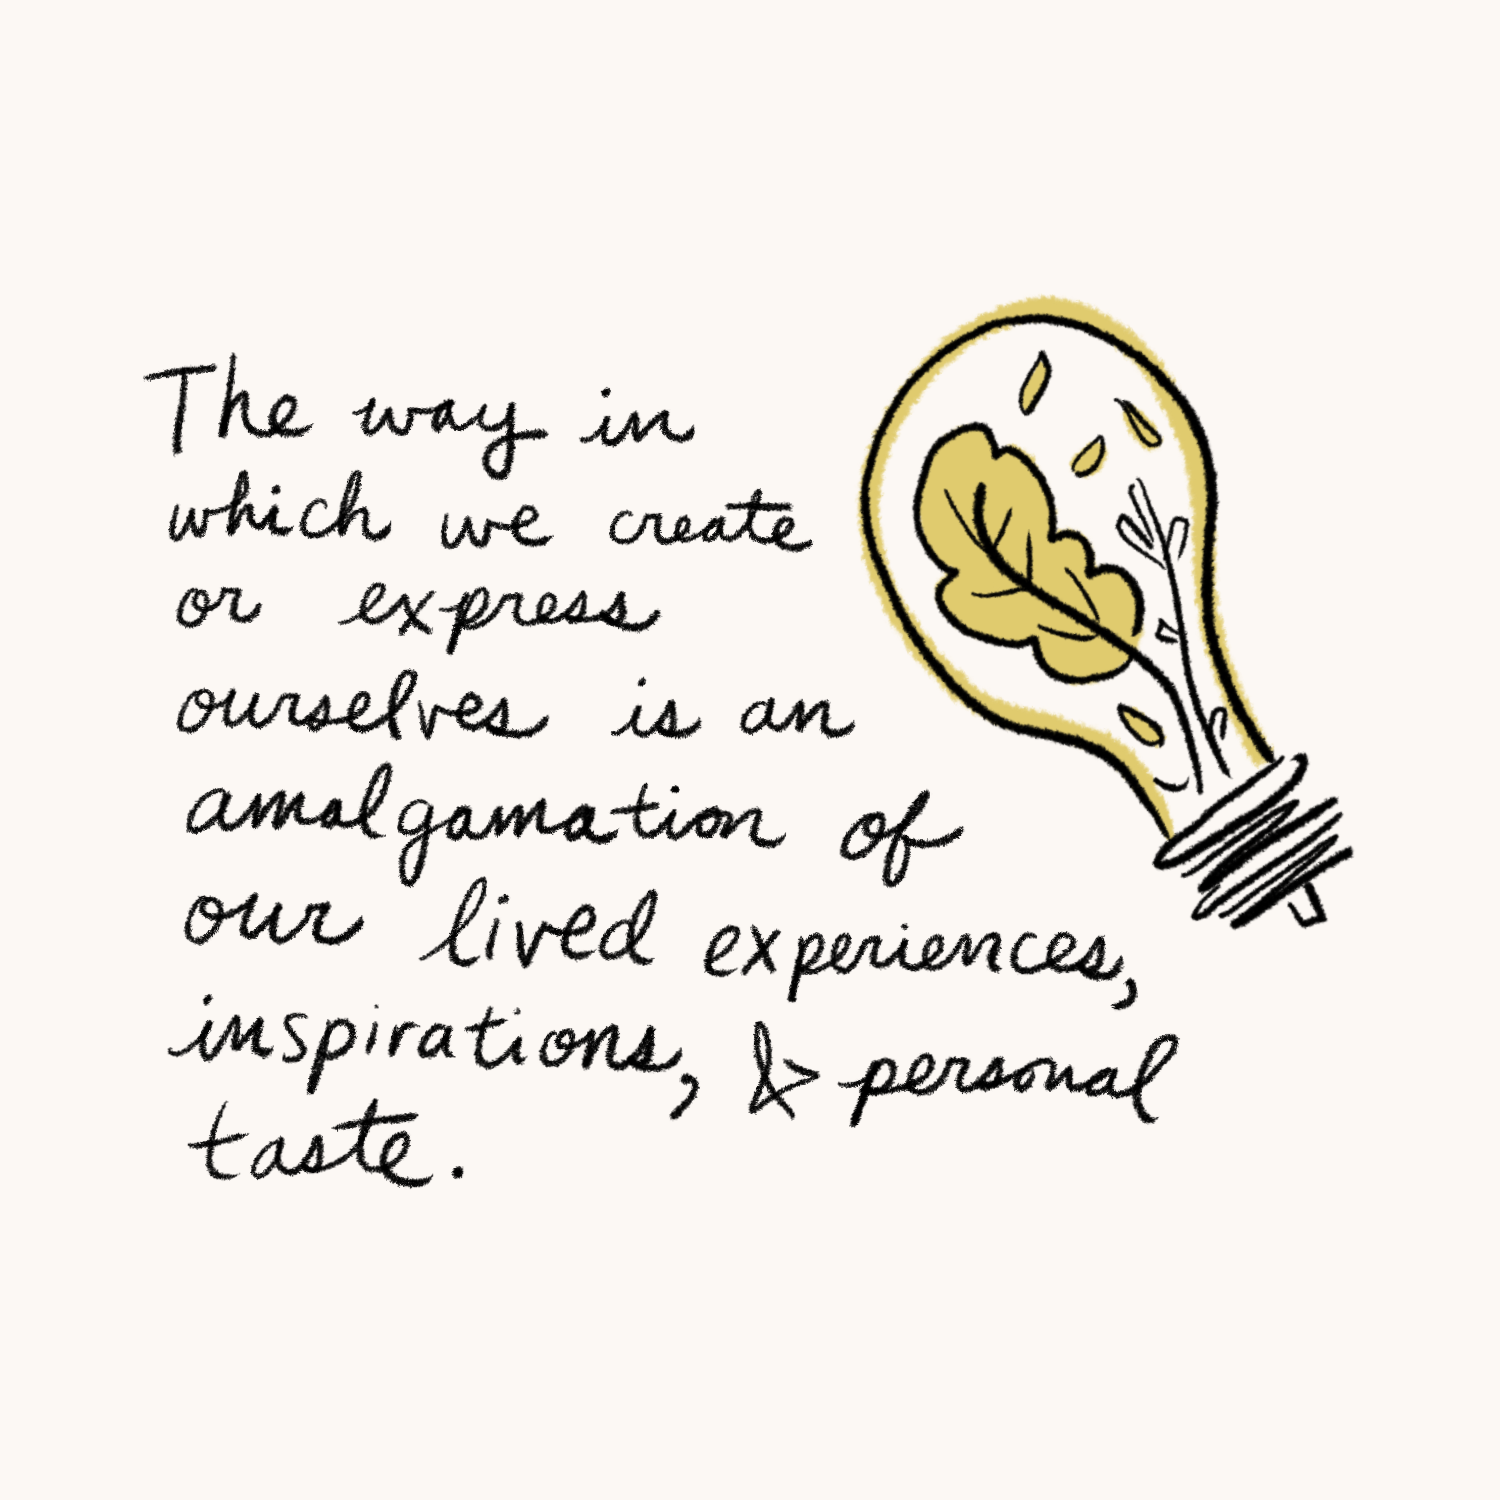 The way in
which we create
or express
ourselves is an
amalgamation of
our lived experiences,
inspirations, & personal
taste.